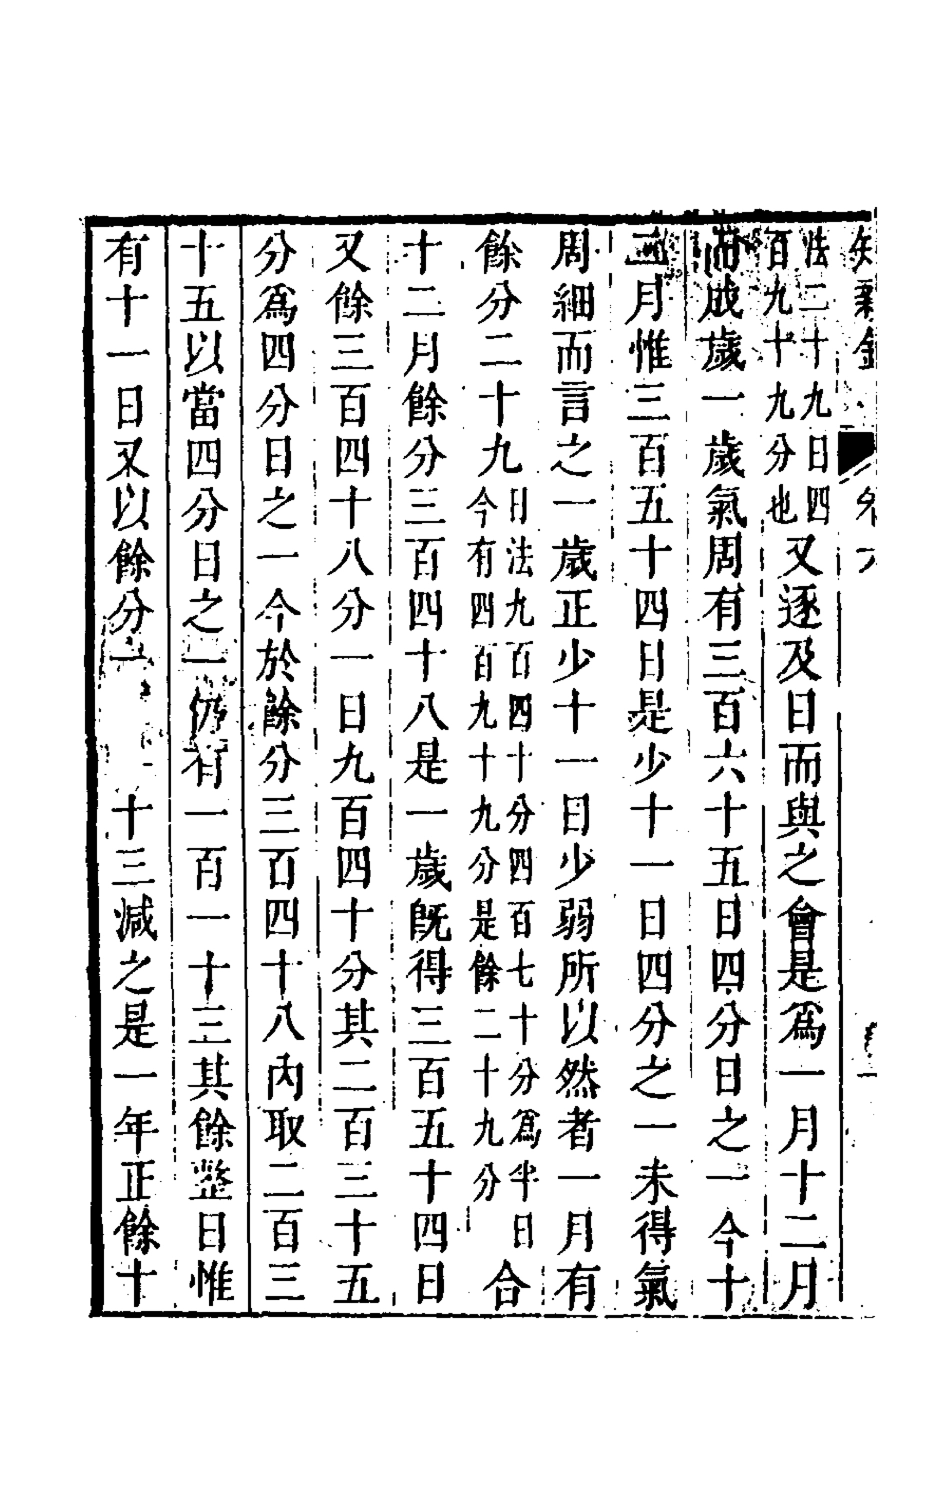 法二十九日四
百九十九分也
又逐及日而與之會是爲一月十二月
而成歲一歲氣周有三百六十五日四分日之一今十
二月惟三百五十四日是少十一日四分之一未得氣
周細而言之一歲正少十一日少弱所以然者一月有
餘分二十九
日法九百四十分四百七十分爲半日
今有四百九十九分是餘二十九分
合
十二月餘分三百四十八是一歲旣得三百五十四日
又餘三百四十八分一日九百四十分其二百三十五
分爲四分日之一今於餘分三百四十八內取二百三
十五以當四分日之一仍有一百一十三其餘整日惟
有十一日又以餘分一
十三減之是一年正餘十